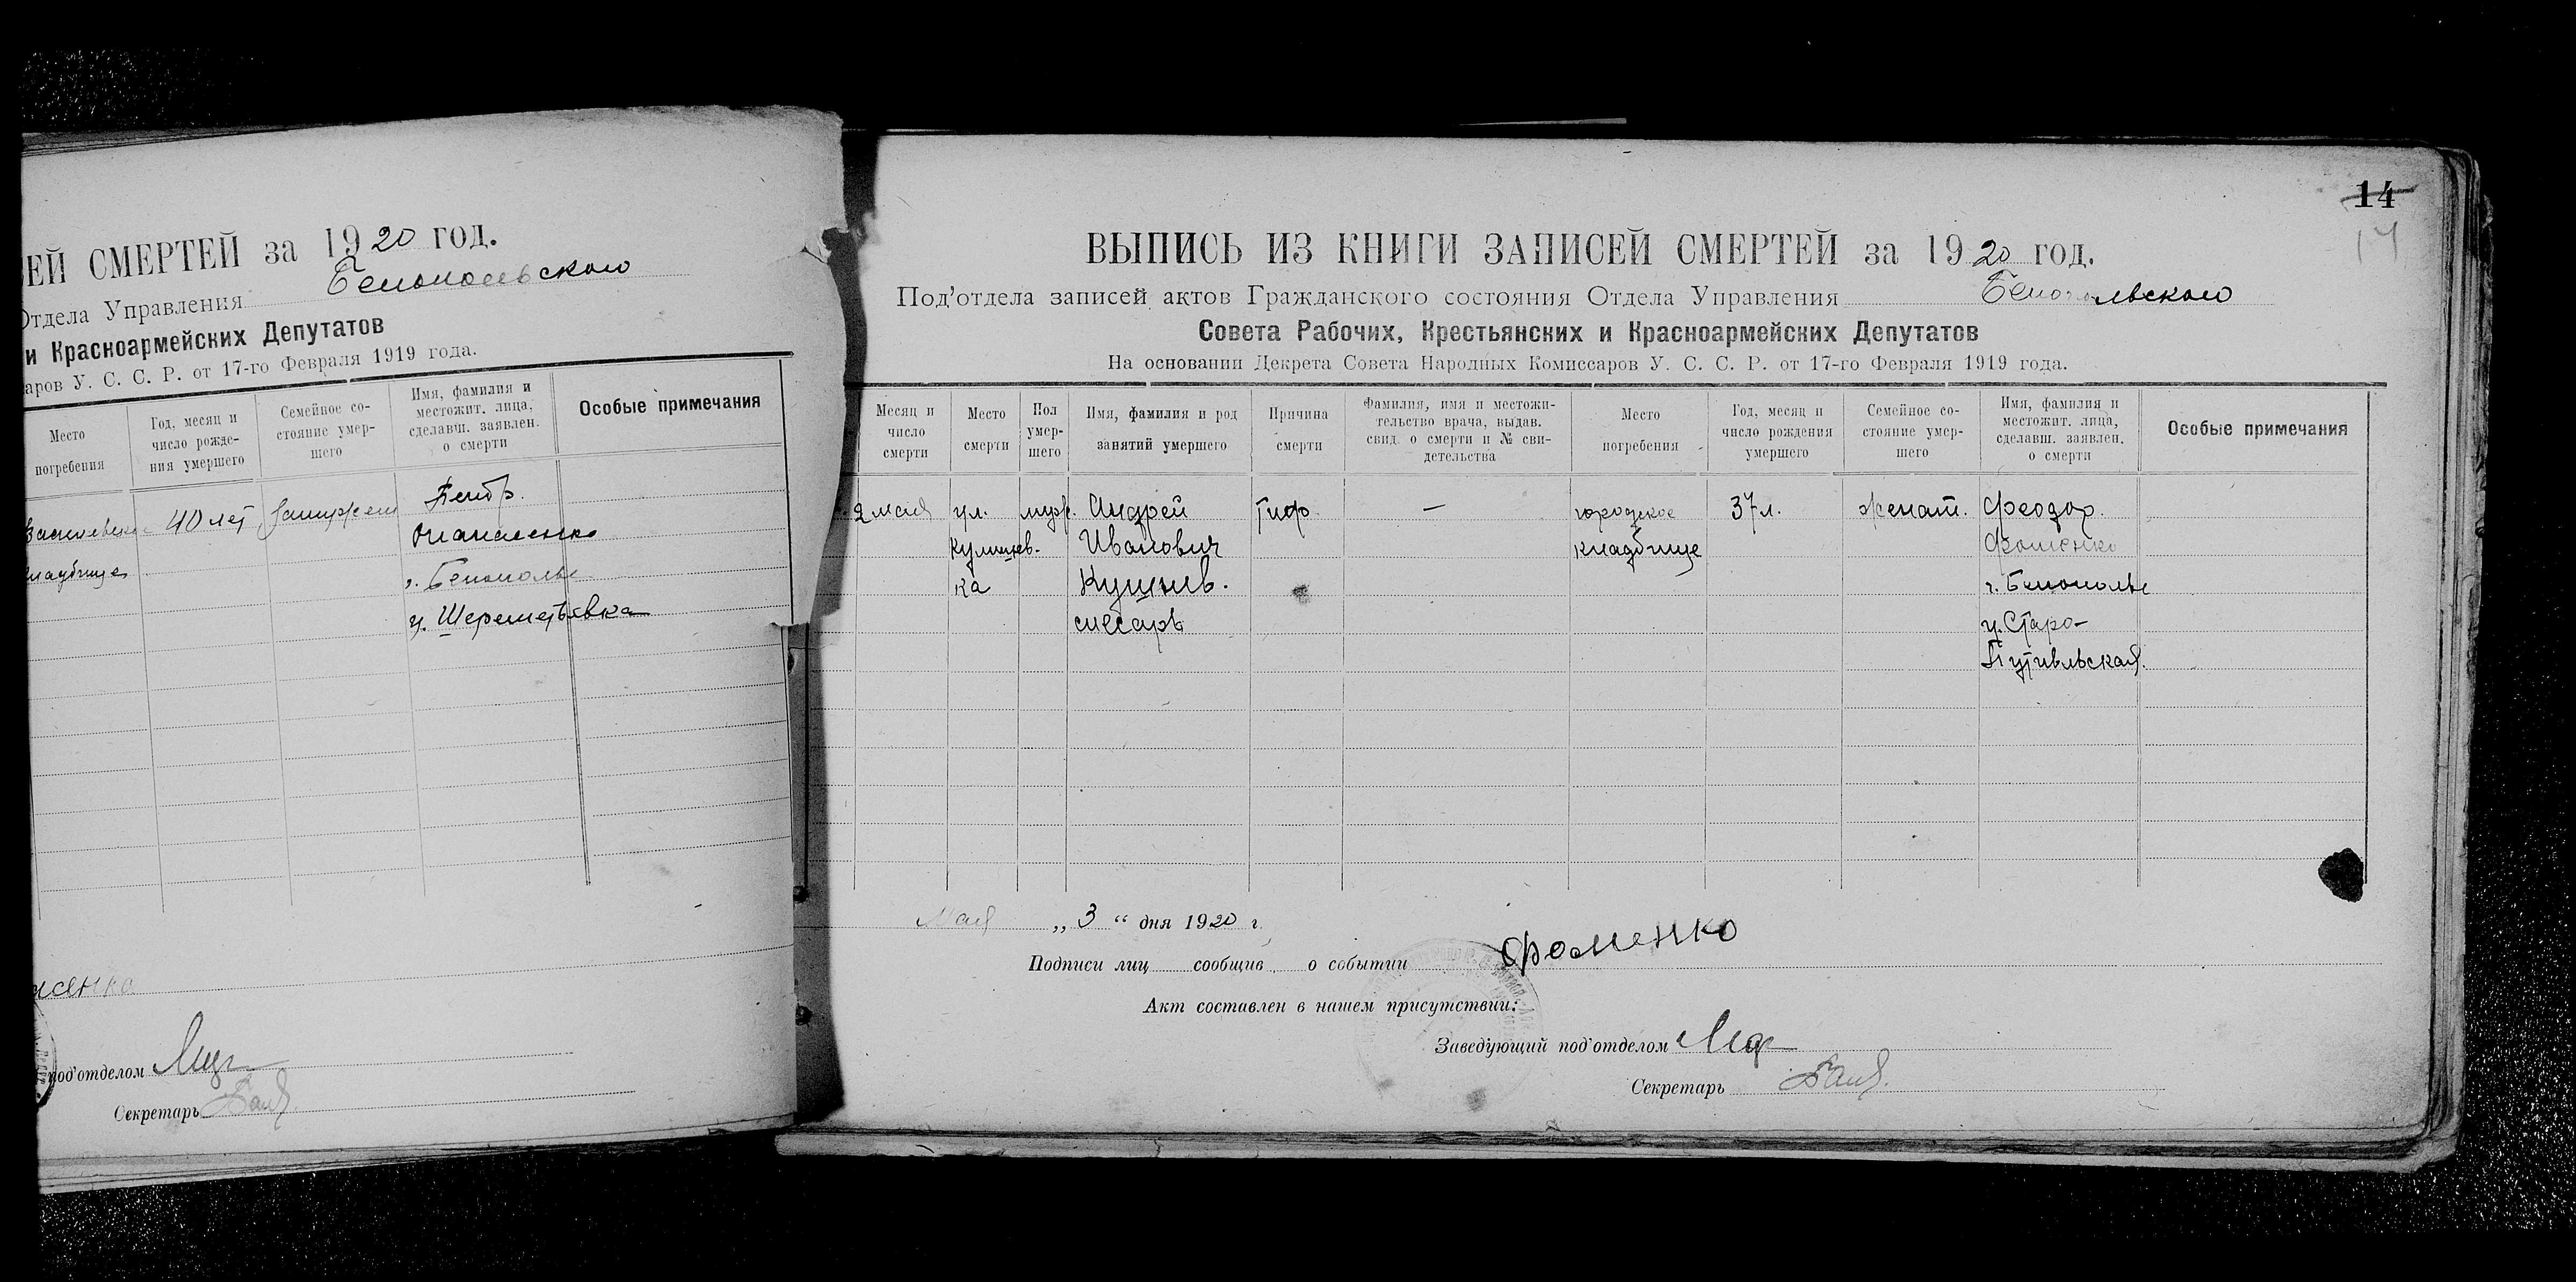 ЕЙ СМЕРТЕЙ за 1920 год.
Отдела Управления Белопольского
и Красноармейских Депутатов
аров У. С. С. Р. от 17-го Февраля 1919 года.
Место погребения
Год, месяц и число рожде- ния умершего
Семейное со- стояние умер- шего
Имя, фамилия и местожит. лица, сделавш. заявлен. о смерти
Особые примечания
40 лет замужем Петр
кладбище
г. Белополье
ул. Шереметьевка
под'отделом
Секретарь
14
14
ВЫПИСЬ ИЗ КНИГИ ЗАПИСЕЙ СМЕРТЕЙ за 1920 год.
Под'отдела записей актов Гражданского состояния Отдела Управления Белопольского
Совета Рабочих, Крестьянских и Красноармейских Депутатов
На основании Декрета Совета Народных Комиссаров У. С. С. Р. от 17-го Февраля 1919 года.
Месяц и число смерти
Место смерти
Пол умер- шего
Имя, фамилия и род занятий умершего
Причина смерти
Фамилия, имя и местожи- тельство врача, выдав. свид. о смерти и № сви- детельства
Место погребения
Год, месяц и число рождения умершего
Семейное со- стояние умер- шего
Имя, фамилия и местожит. лица, сделавш. заявлен. о смерти
Особые примечания
2 мая ул. муж. Андрей Тиф. — городское 37 л. женат. Феодор.
Кулишев- Иванович кладбище Фоменко
ка Кушнев. г. Белополье
слесарь ул. Старо-
Путивльская.
Мая „ 3 “ дня 1920 г.
Подписи лиц сообщив о событии Фоменко
Акт составлен в нашем присутствии:
Заведующий под'отделом
Секретарь